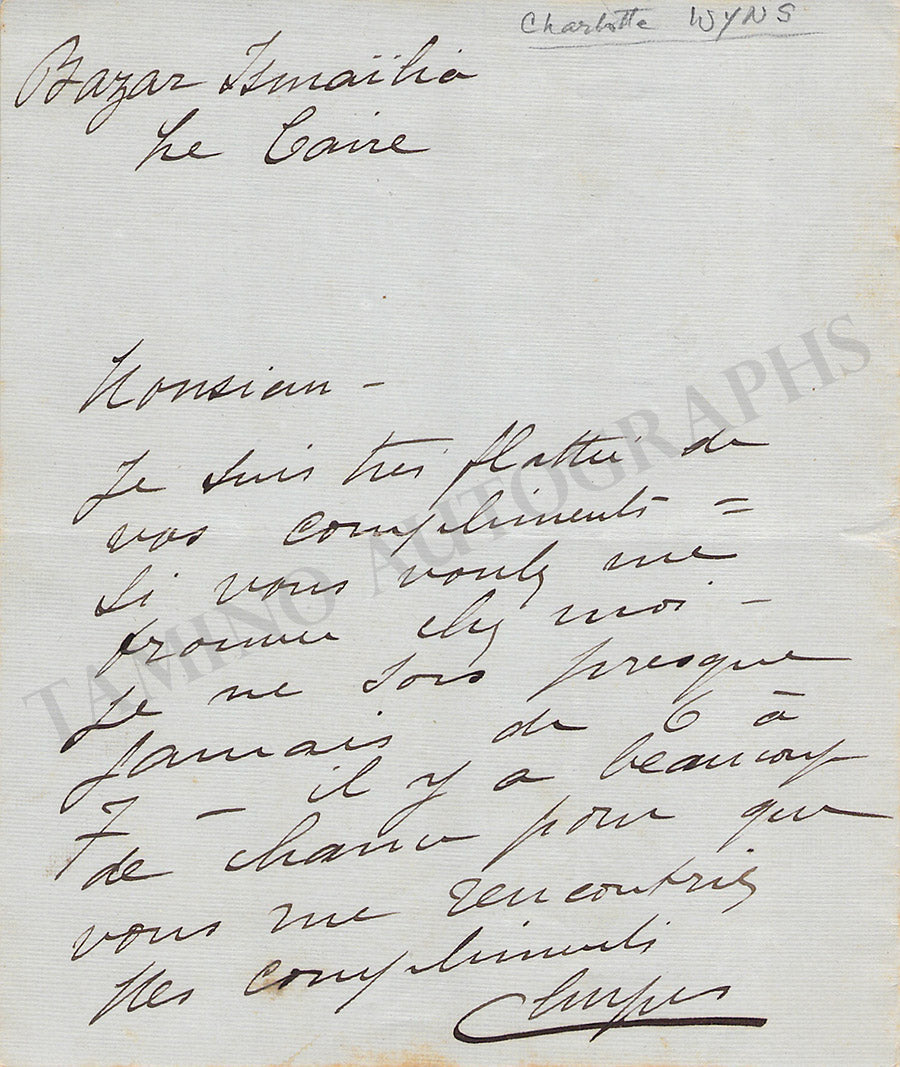 Charlotte WYNS
Bazar Ismaïlia
Le Caire
Monsieur -
Je suis très flattée de
vos compliments =
Si vous voulez me
trouver chez moi -
Je ne sors presque
jamais de 6 à
7 - il y a beaucoup
de chance pour que
vous me rencontriez
Mes compliments
TAMINO AUTOGRAPHS